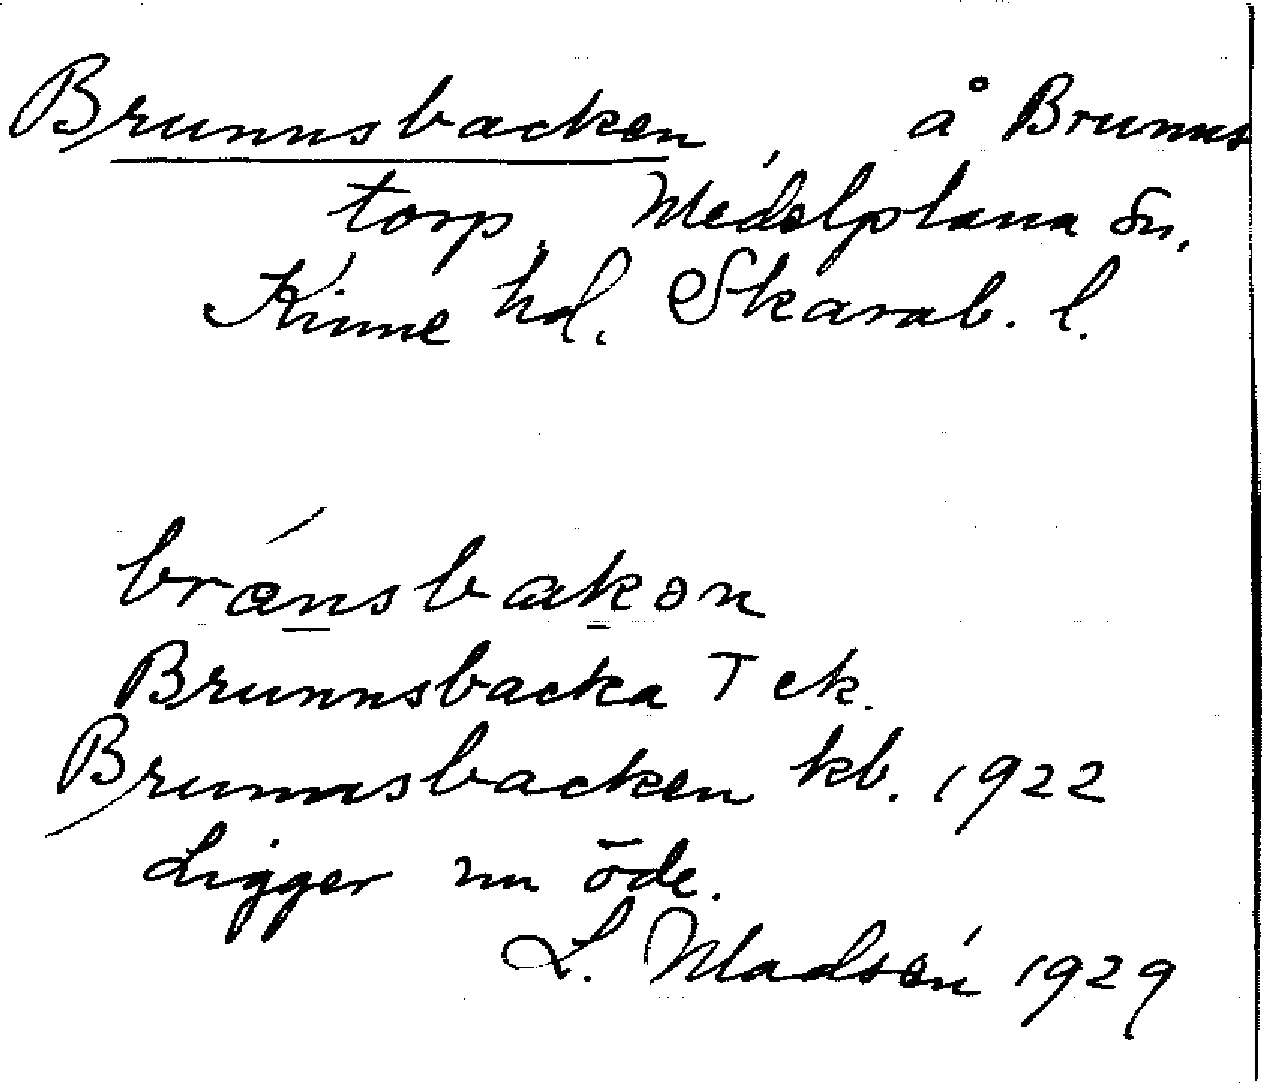 Brunnsbacken, å Brunns
torp, Medelplana Sn,
Kinne hd. Skarab. l.
Brunnsbacka T ek.
Brunnsbacken kb. 1922
Ligger nu öde.
L. Madsén 1929